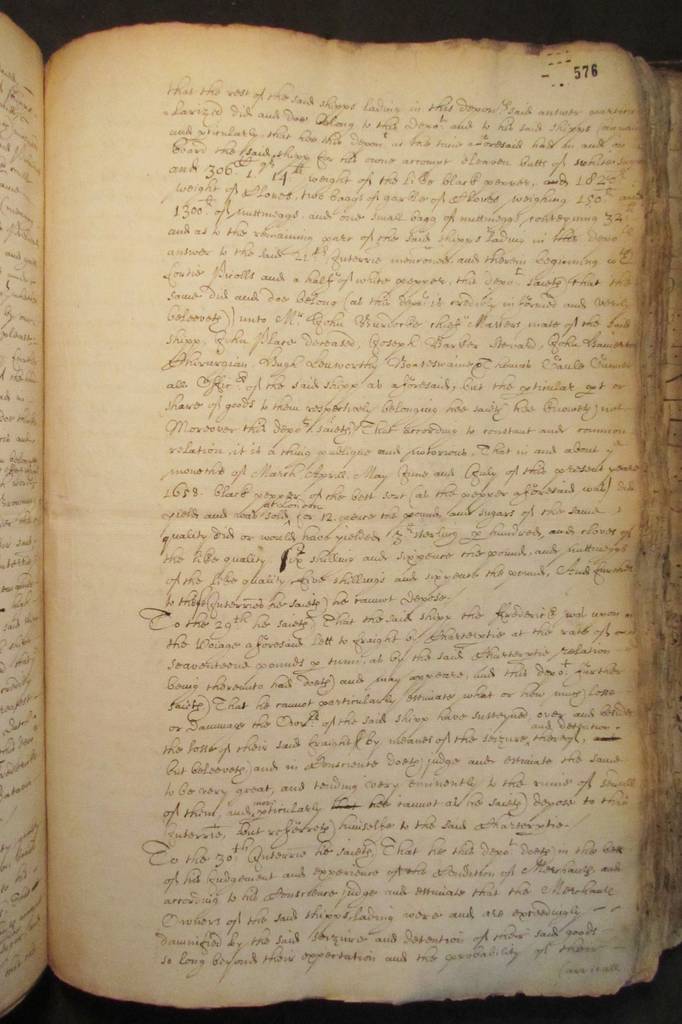 576
that the rest of the said shipps lading in this depon:ts said answer particu
larized did and doe belong to this depo:t and to his said shipps company
and pticularly that hee this depon:t at the time aforesaid had in and on
board the said shipp for his owne account eleaven butts of white sugar
and 306 14 weight of the like black pepper, and 182
weight of Cloves, two baggs of garble of Cloves weighing 150 and
1300 of nuttmeggs and one small bagg of nuttmeggs conteyning 34
and as to the remaining part of the said shipps lading in this depo:ts
answer to the said 21th Interrie mencioned and therein beginning with
fortie and a halfe of white pepper, this depo:t saieth that the
same did and doe belong (as this depo:t is credibly informed and verily
beleeveth) unto Mr John cheif Masters mate of the said
shipp, John Place deceased, Joseph Barker Steward, John
Chirurgian, Hugh Boatswaine, Thomas Gunner
all Officers of the said shipp as aforesaid, but the pticular pt or
share of goods to them respectively belonging hee saieth hee knoweth not
Moreover this depo:t saieth, That according to constant and common
relation, it is a thing publique and notorious, That in and about ye
moneths of March Aprill May June and July of this present yeare
1658. black pepper of the best sort (as the pepper aforesaid was) did
yeild and was sold at London for 12 pence the pound, and sugars of the same
quality did or would have yeilded sterling p hundred, and cloves of
the like quality six shilling and sixpence the pound, and nuttmeggs
of the like quality five shillings and sixpence the pound, And further
to these Interries he saieth he cannot depose.
To the 29th he saieth That the said shipp the Frederick was upon
the Voiage aforesaid lett to fraight by Charterptie at the rate of
seaventeene pounds p tunn, as by the said Charterptie (relation
being thereunto had) doeth and may appeare, and this depo:t further
saieth That he cannot particularly estimate what or how much losse
or Dammage the Own:rs of the said shipp have susteyned over and besides
the losse of their said fraight by meanes of the seizure and detention thereof,
but beleeveth and in Conscience doeth judge and estimate the same
to be very great, and tending very eminently to the ruine of severall
of them, and more pticularly cannot as he saieth depose to this
Interrie, but referreth himselfe to the said Charterptie.
To the 30th Interrie he saieth That he this depo:t doeth in the best
of his Judgement and experience of the Condition of Merchants and
according to his Conscience judge and estimate that the Merchants
Owners of the said shipps lading were and are exceedingly
damnified by the said seizure and detention of their said goods
so long beyond their expectation and the probability of their